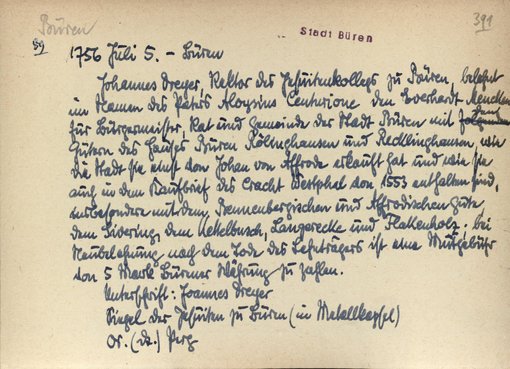 Büren
Stadt Büren
391
59
1756 Juli 5. - Büren
Johannes Dreyer, Rektor des Jesuitenkollegs zu Büren, belehnt
im Namen des Paters Aloysius Centurione den Everhardt Mencken
für Bürgermeister, Rat und Gemeinde der Stadt Büren mit
Gütern des Hauses Büren Röllinghausen und Redlinghausen, wie
die Stadt sie einst von Johan von Affrode erkauft hat und wie sie
auch in dem Kaufbrief des Cracht Westphel von 1553 enthalten sind,
insbesondere mit dem Brennenbergischen und Affrodischen Gute,
dem Sivering, dem Uekelbusch, Langerecke und Flakenholz; bei
Neubelehnung nach dem Tode des Lehnträgers ist eine Mutgebühr
von 5 Mark Bürener Währung zu zahlen.
Unterschrift: Joannes Dreyer
Siegel der Jesuiten zu Büren (in Metallkapsel)
Or. (dt.) Perg